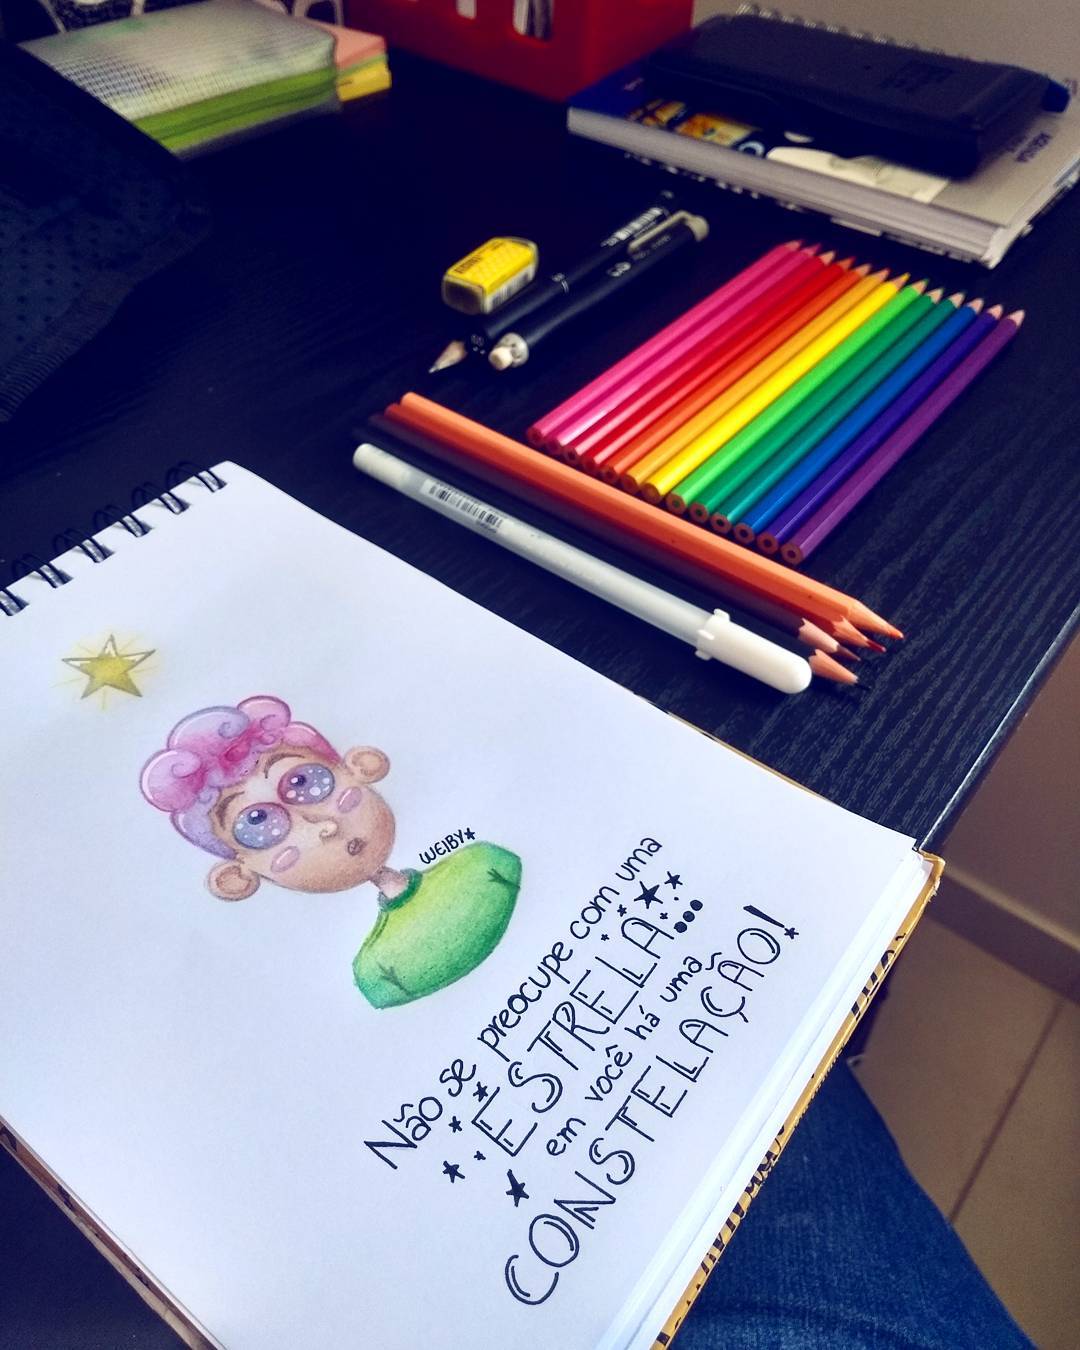 WEIBY
Não se preocupe com uma
ESTRELA...
em você há uma
CONSTELAÇÃO!
AGENDA